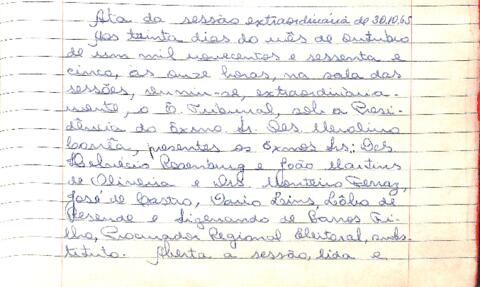 Ata da sessão extraordinária de 30.10.65
Aos trinta dias do mês de outubro
de um mil novecentos e sessenta e
cinco, às onze horas, na sala das
sessões, reuniu-se, extraordinaria-
mente, o E. Tribunal, sob a Presi-
dência do Exmo Sr. Des. Merolino
Corrêa, presentes os Exmos Srs.: Des
Helvécio Rosenburg e João Martins
de Oliveira e Drs. Monteiro Ferraz,
José de Castro, Osario Lins, Lôbo de
Resende e Lizenando de Barros Fi-
lho, Procurador Regional Eleitoral, subs-
tituto. Aberta a sessão, lida e